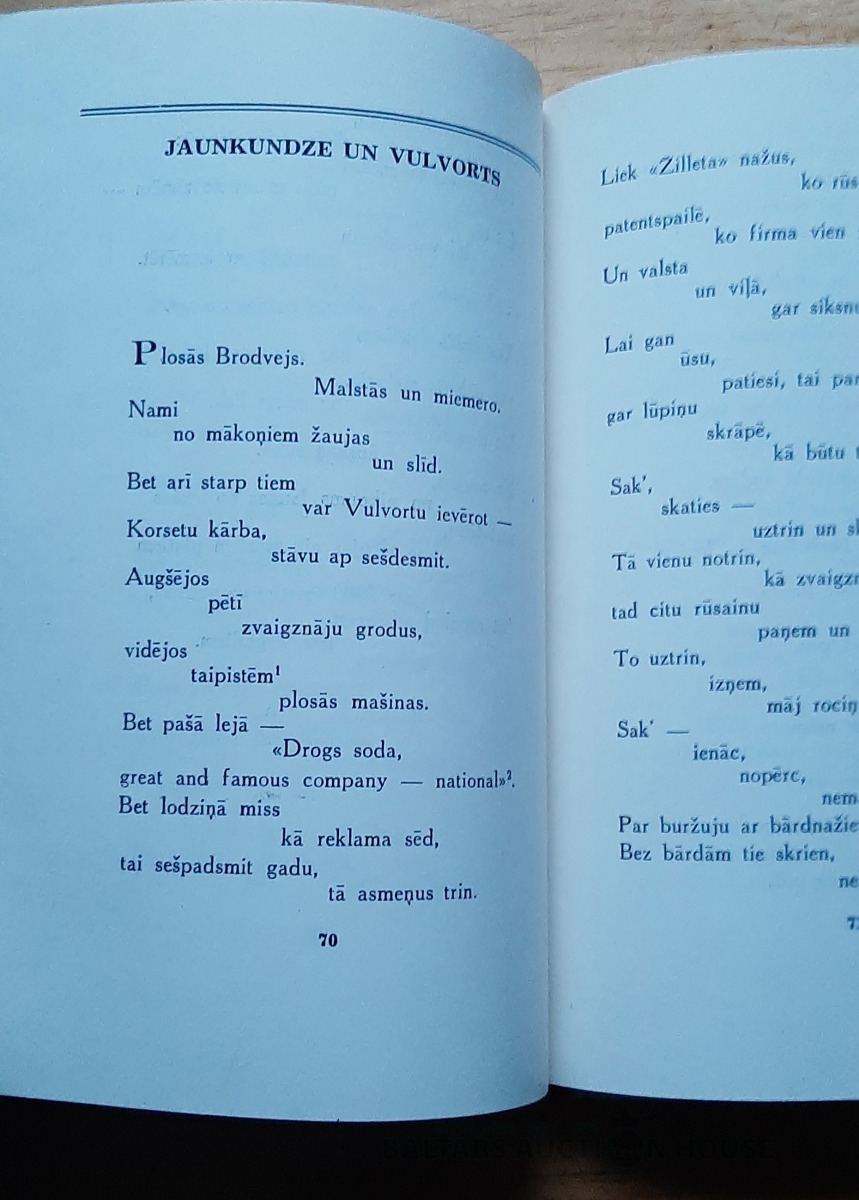 JAUNKUNDZE UN VULVORTS
Plosās Brodvejs.
Malstās un miemero.
Nami
no mākoņiem žaujas
un slīd.
Bet arī starp tiem
var Vulvortu ievērot —
Korsetu kārba,
stāvu ap sešdesmit.
Augšējos
pētī
zvaigznāju grodus,
vidējos
taipistēm¹
plosās mašinas.
Bet pašā lejā —
«Drogs soda,
great and famous company — national»².
Bet lodziņā miss
kā reklama sēd,
tai sešpadsmit gadu,
tā asmeņus trin.
70
Liek «Žilleta» nažus,
ko
patentspailē,
ko firma vien
Un valsta
un viļā,
gar
Lai gan
ūsu,
patiesi, tai
gar lūpiņu
skrāpē,
kā būtu
Sak’,
skaties —
uztrin un
Tā vienu notrin,
kā
tad citu rūsainu
paņem un
To uztrin,
izņem,
māj
Sak’ —
ienāc,
nopērc,
Par buržuju ar
Bez bārdām tie skrien,
BALTARS AUCTION HOUSE